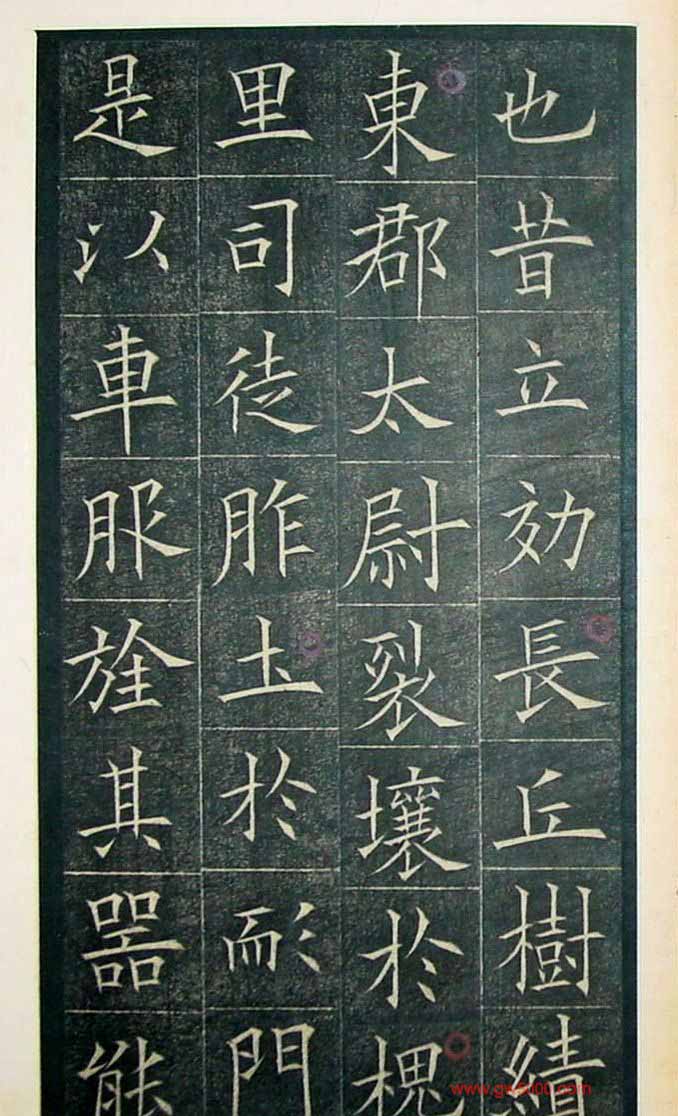 也昔立効長丘樹績
東郡太尉裂壤於槐
里司徒胙圡於耏門
是以車服旌其器能
www.gw5000.com